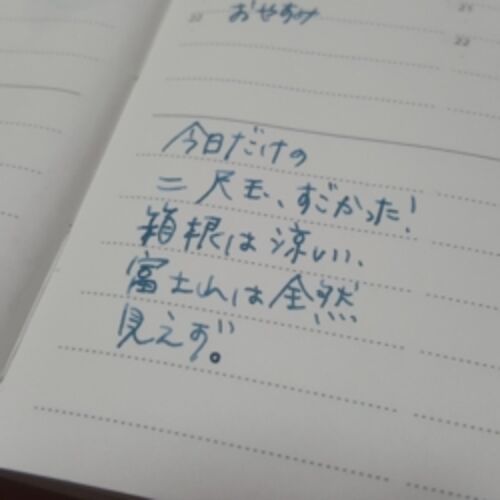 22 おやすみ
21
22
今日だけの
二尺玉、すごかった!
箱根は涼しい、
富士山は全然
見えず。